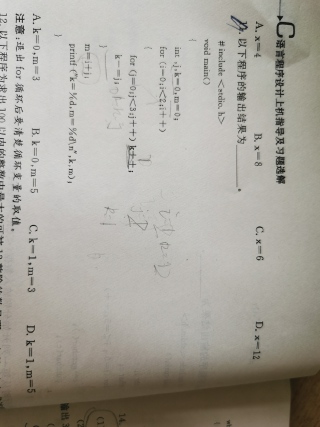 C语言程序设计上机指导及习题选解
A. x=4 B. x=8 C. x=6 D. x=12
以下程序的输出结果为________。
# include <stdio. h>
void main()
{
int j,k=0,m=0;
for (i=0;i<2;i++)
{
for (j=0;j<3;j++) k++;
k-=j;
}
m=i+j;
printf ("k=%d,m=%d\n",k,m);
}
A. k=0,m=3 B. k=0,m=5 C. k=1,m=3 D. k=1,m=5
注意:退出 for 循环后要清楚循环变量的取值。
12. 以下程序为求出 100 以内的整数中最大的可被